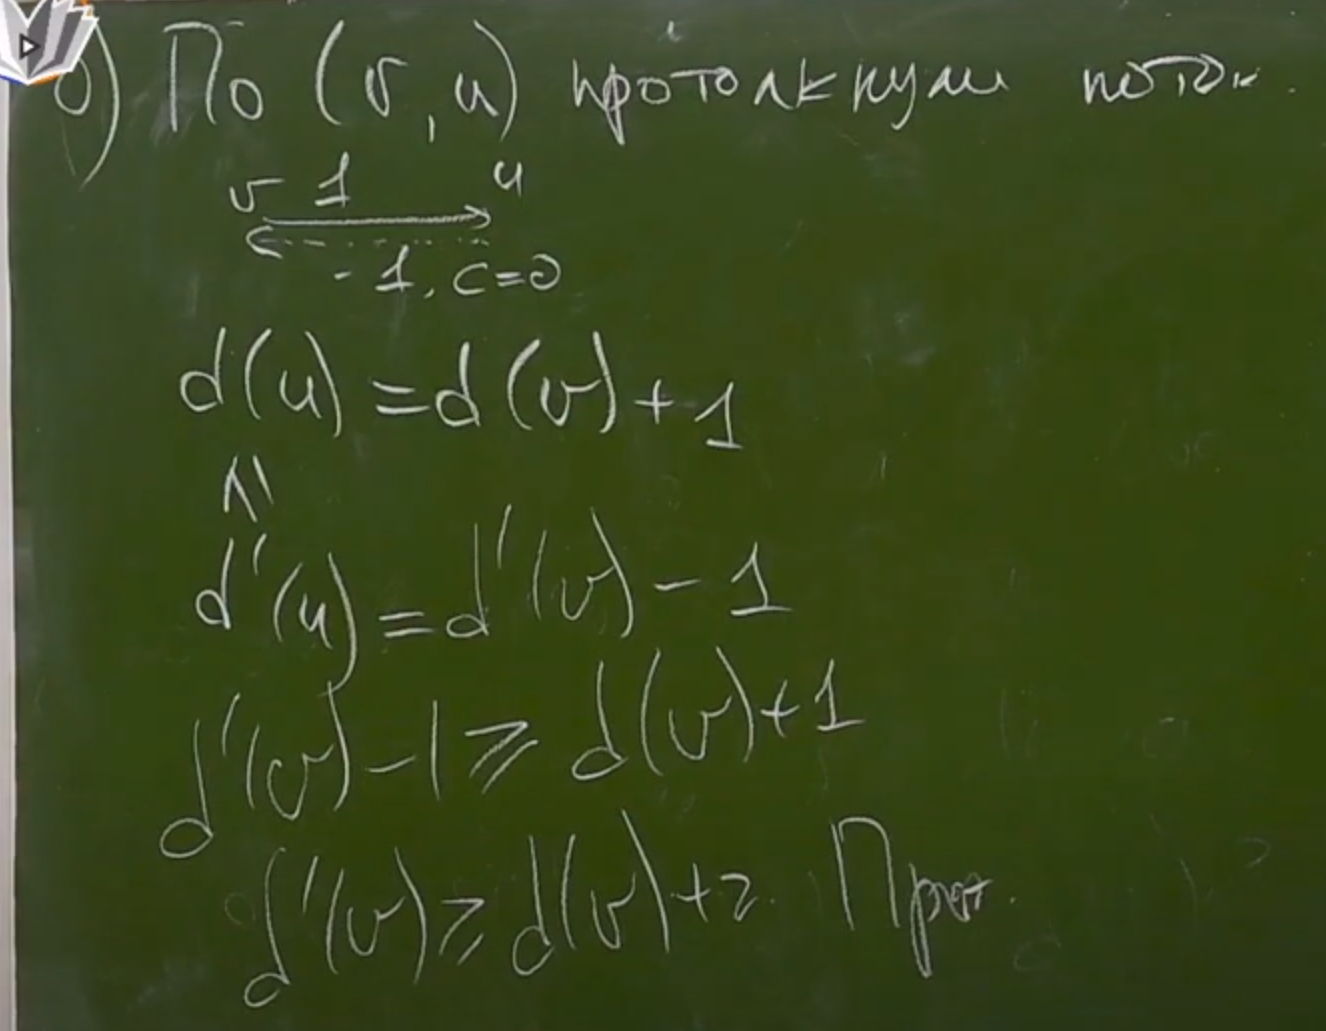 б) По (v, u) протолкнули поток.
v 1 u
-1, c=0
d(u) = d(v) + 1
≤
d'(u) = d'(v) - 1
d'(v) - 1 ≥ d(v) + 1
d'(v) ≥ d(v) + 2. Прот.